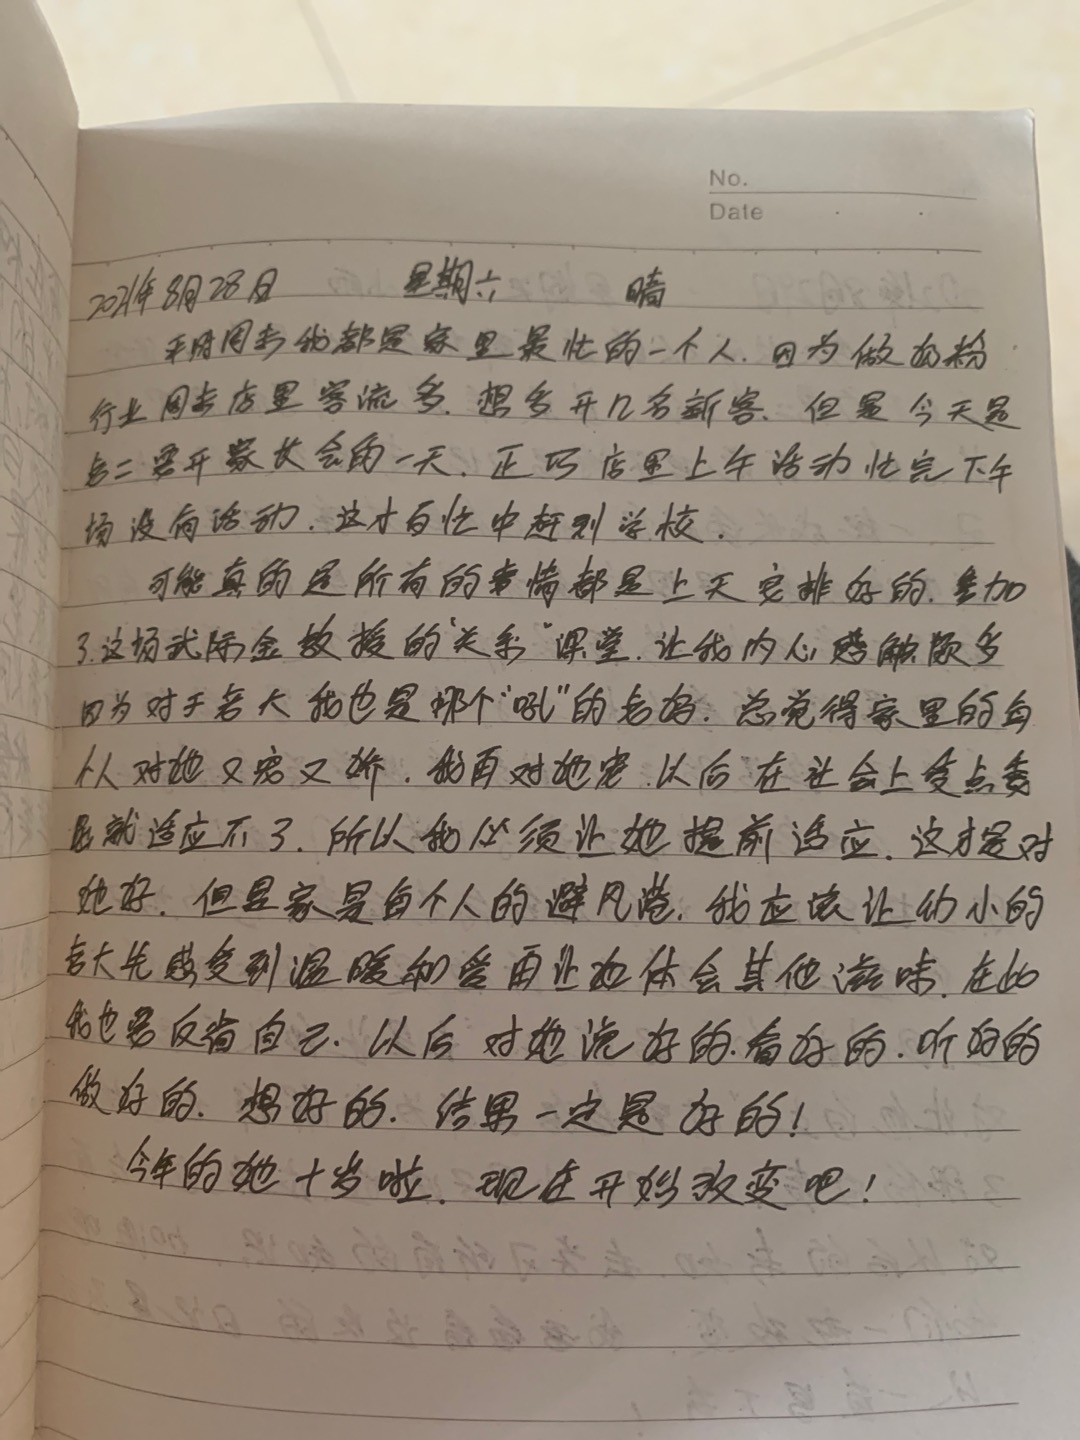 No.
Date
2021年8月28日 星期六 晴
平时周末我都是家里最忙的一个人.因为做奶粉
行业周末店里客流多.想多开几名新客.但是今天是
老二要开家长会的一天.正巧店里上午活动忙完下午
场没有活动.这才百忙中赶到学校.
可能真的是所有的事情都是上天安排好的.参加
了这场武际金教授的"关系"课堂.让我内心感触颇多
因为对于老大我也是那个"吼"的老妈.总觉得家里的每
个人对她又宠又娇.我再对她宠.以后在社会上受点委
屈就适应不了.所以我必须让她提前适应.这才是对
她好.但是家是每个人的避风港.我应该让幼小的
老大先感受到温暖和爱再让她体会其他滋味.在此
我也要反省自己.以后对她说好的.看好的.听好的
做好的.想好的.结果一定是好的!
今年的她十岁啦.现在开始改变吧!